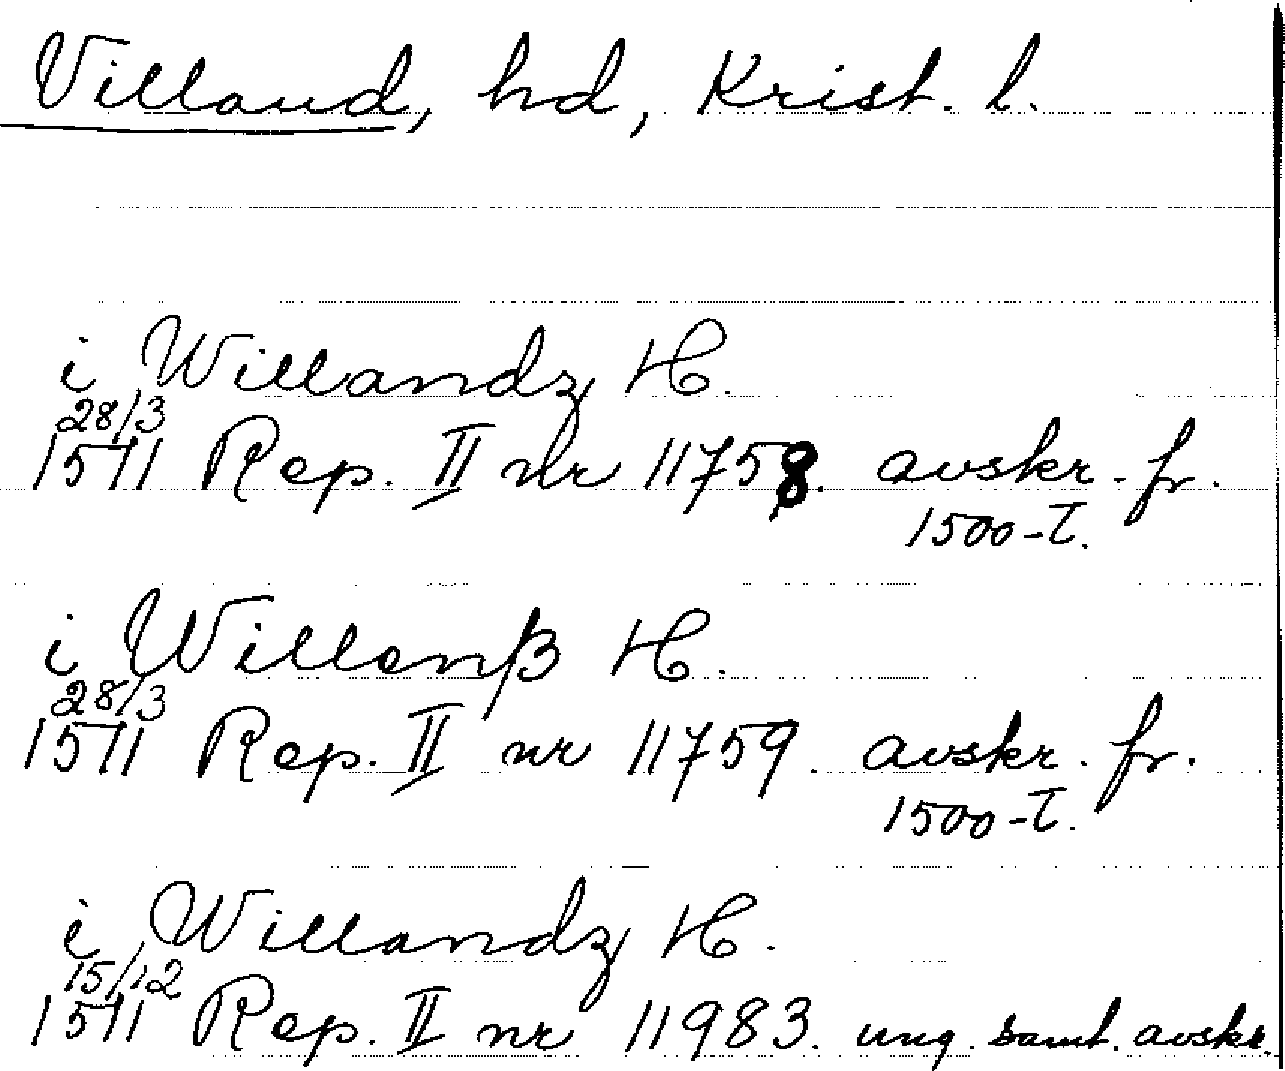 Villand, hd, Krist. l.
i Willandz H.
28/3
1511 Rep. II nr 11758. avskr. fr.
1500-t.
i Willenß H.
28/3
1511 Rep. II nr 11759. avskr. fr.
1500-t.
i Willandz H.
15/12
1511 Rep. II nr 11983. ung. samt. avskr.